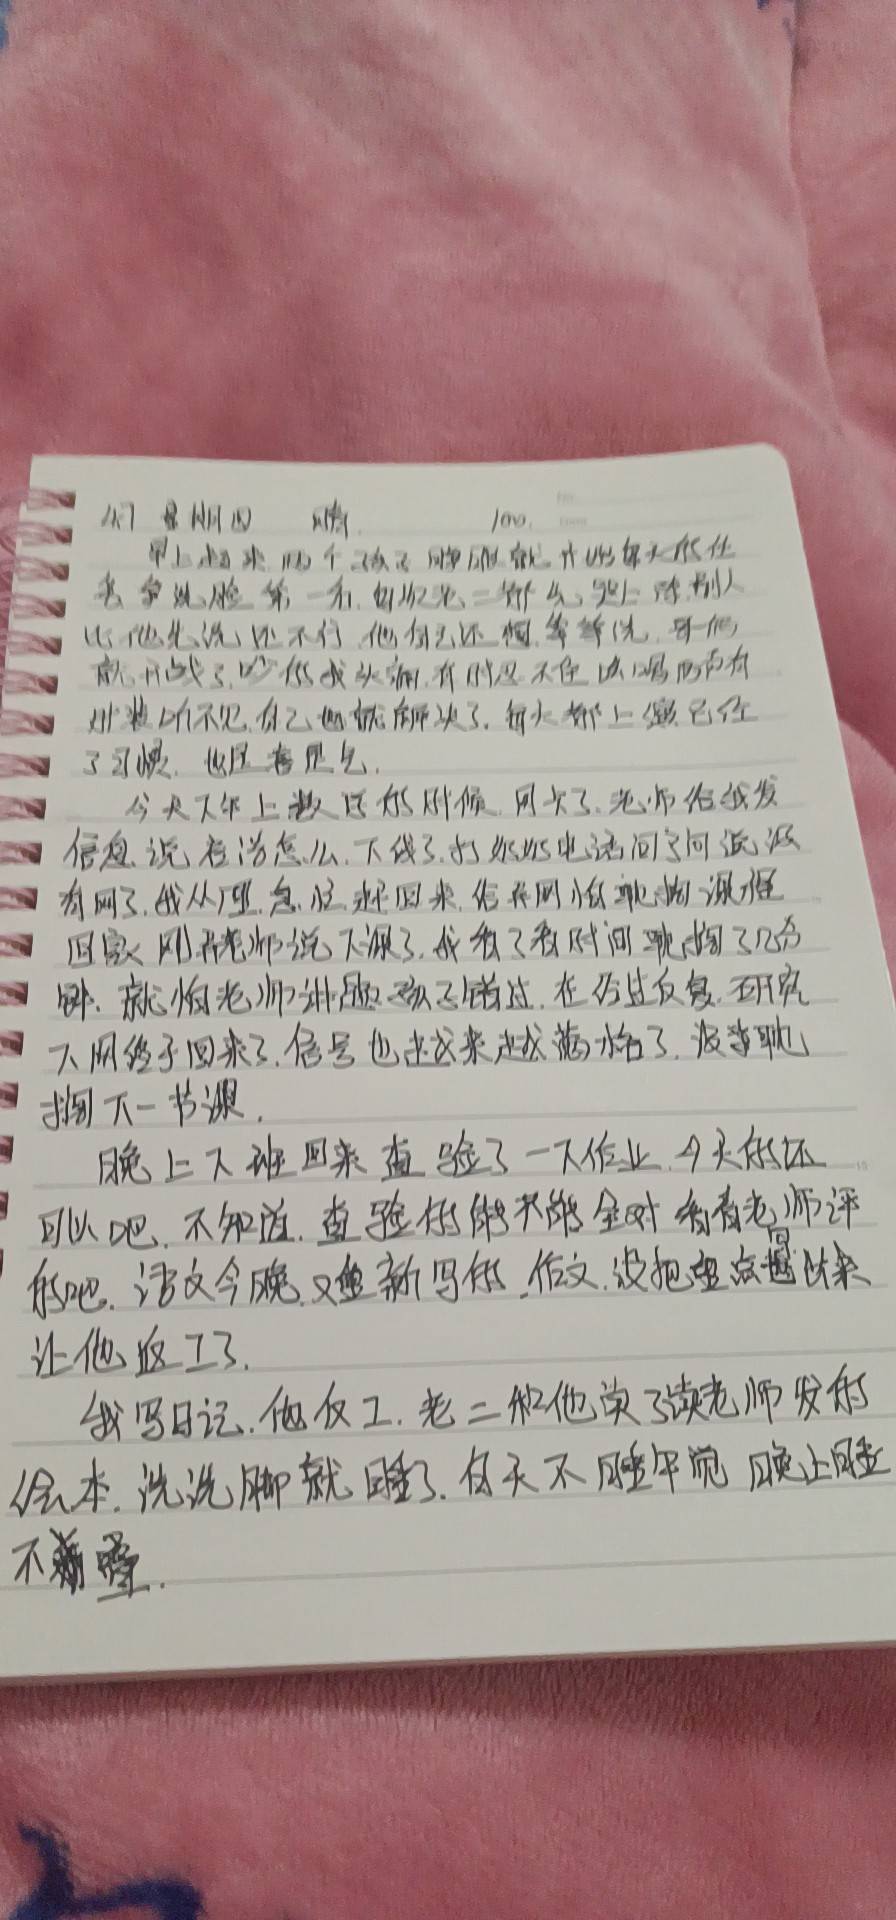 4.7 星期四 晴. 100.
早上起来两个孩子 就开始每天的任
务争洗脸第一名,每次老二都么哭上 别人
比他先洗还不行,他自己还想等等洗,哥俩
就开战了,吵的我头痛,有时忍不住 两声有
时装听不见,自己也就解决了.每天都上演已经
了习惯,也 着是乞.
今天下午上数 的时候,网卡了,老师给我发
信息,说 怎么下线了,打 电话问了问说没
有网了,我从厂里急忙赶回来,给弄网怕耽搁课程
回家刚 老师说下课了,我看了看时间耽搁了几分
钟.就怕老师讲题孩子错过,在 反复研究
下网终于回来了,信号也越来越满格了.没事耽
搁下一节课.
晚上下班回来查验了一下作业.今天的还
可以吧,不知道,查验的能不能全对看看老师评
的吧,语文今晚又重新写的,作文,没把重点写出来
让他返工了.
我写日记,他反工.老二和他读了读老师发的
绘本.洗洗脚就睡了.白天不睡午觉晚上睡
不着.